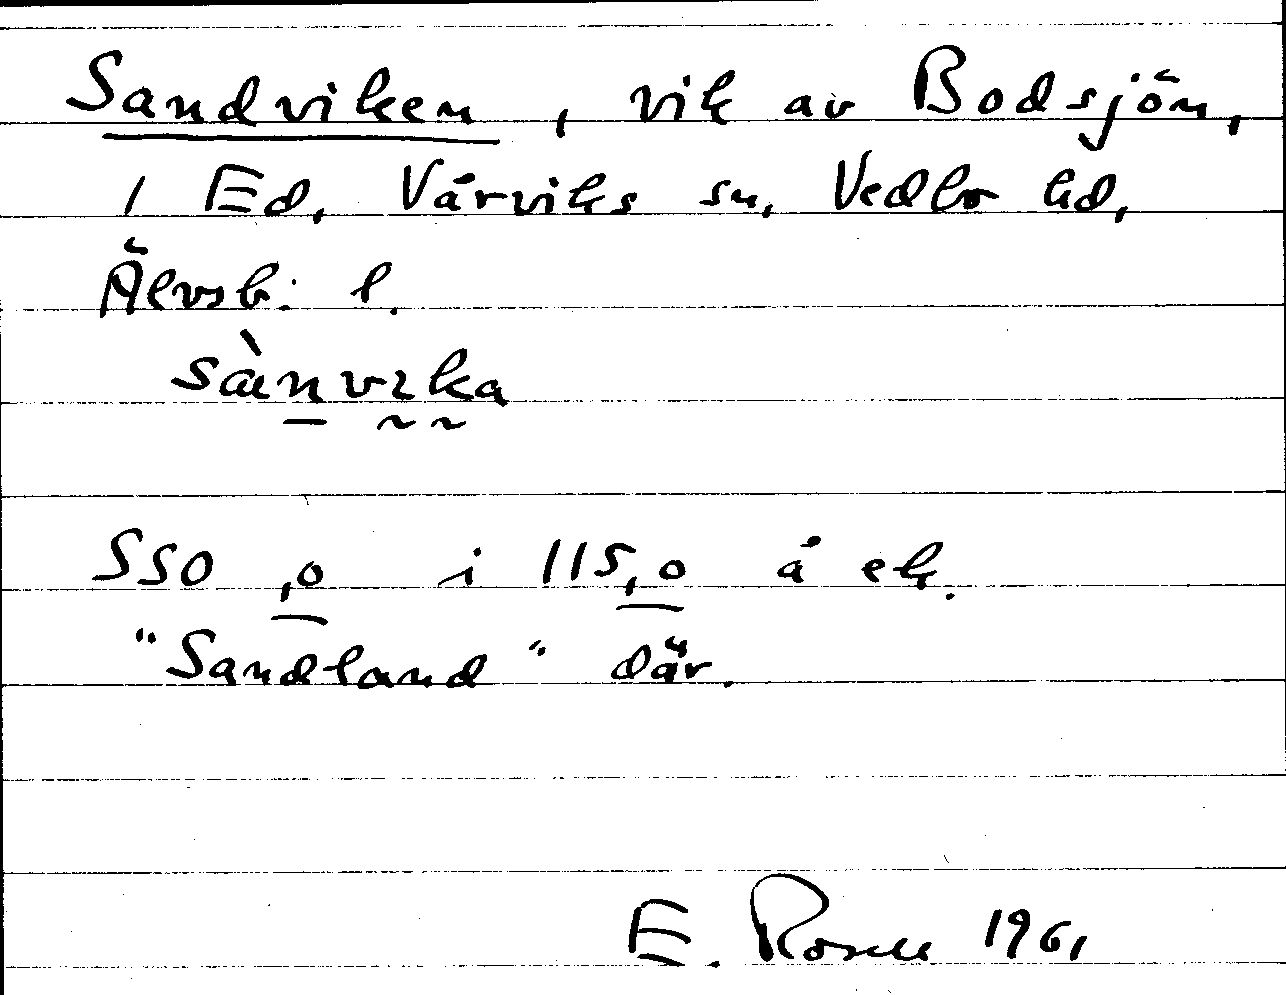 Sandviken, vik av Bodsjön,
1 Ed, Vårviks sn, Vedbo hd,
Älvsb. l.
sànvıka
SSO ,o i 115,o å ek.
"Sandland" där.
E. Rosell 1961